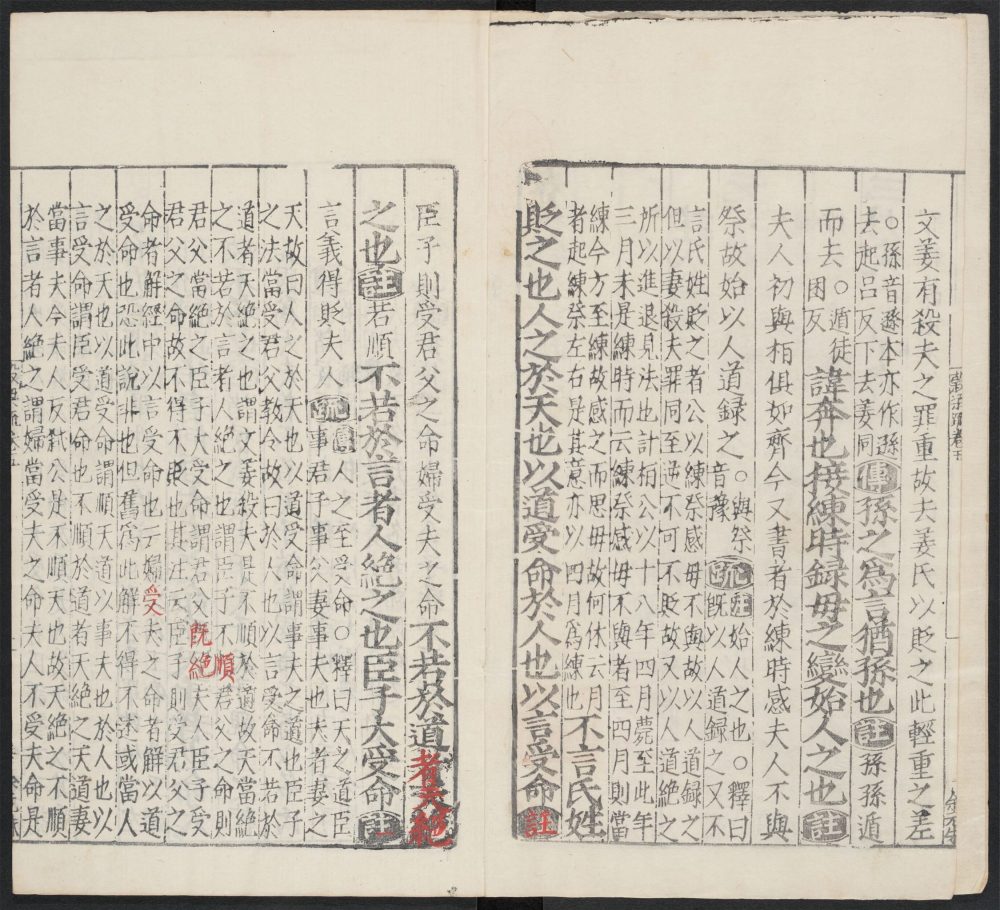 文姜有殺夫之罪重故去姜氏以貶之此輕重之差
○孫音遜本亦作孫
去起呂反下去姜同
傳
孫之為言猶孫也
註
孫孫遁
而去
○遁徒
困反
諱奔也接練時録母之變始人之也
註
夫人初與桓俱如齊今又書者於練時感夫人不與
祭故始以人道録之
○與祭
音豫
疏
註
始人之也○釋曰
既以人道録之又不
言氏姓貶之者公以練祭感母不與故以人道録之
但以妻殺夫罪同至逆不可不貶故又以人道絶之
所以進退見法也計桓公以十八年四月薨至此年
三月未是練時而云練祭感母不與者至四月則當
練今方至練故感之而思母故何休云月
者起練祭左右是其意亦以四月為練也
不言氏姓
貶之也人之於天也以道受命於人也以言受命
註
臣子則受君父之命婦受夫之命
不若於道
者天絶
之也
註
若順
不若於言者人絶之也臣子大受命
註
言義得貶夫人
疏
傳
人之至受命○釋曰天之道臣
事君子事父妻事夫也夫者妻之
天故曰人之於天也以道受命謂事夫之道也臣子
之法當受君父教令故曰於人也以言受命不若於
道者天絶之謂文姜殺夫是不順於道故天當絶
之不若於言者人絶之也謂臣子不順君父之命則
君父當絶之臣子大受命謂君父既絶夫人臣子受
君父之命故不得不貶也其注云臣子則受君父之
命者解經中以言受命也云婦受夫之命者解以道
受命也恐此說非也但舊為此解不得不述或當人
之於天也以道受命謂順天道以事夫也於人也以
言受命謂臣受君命也不順於道者天絶之天道妻
當事夫今夫人反弒公是不順天也故天絶之不順
於言者人絶之謂婦當受夫之命夫人不受夫命是